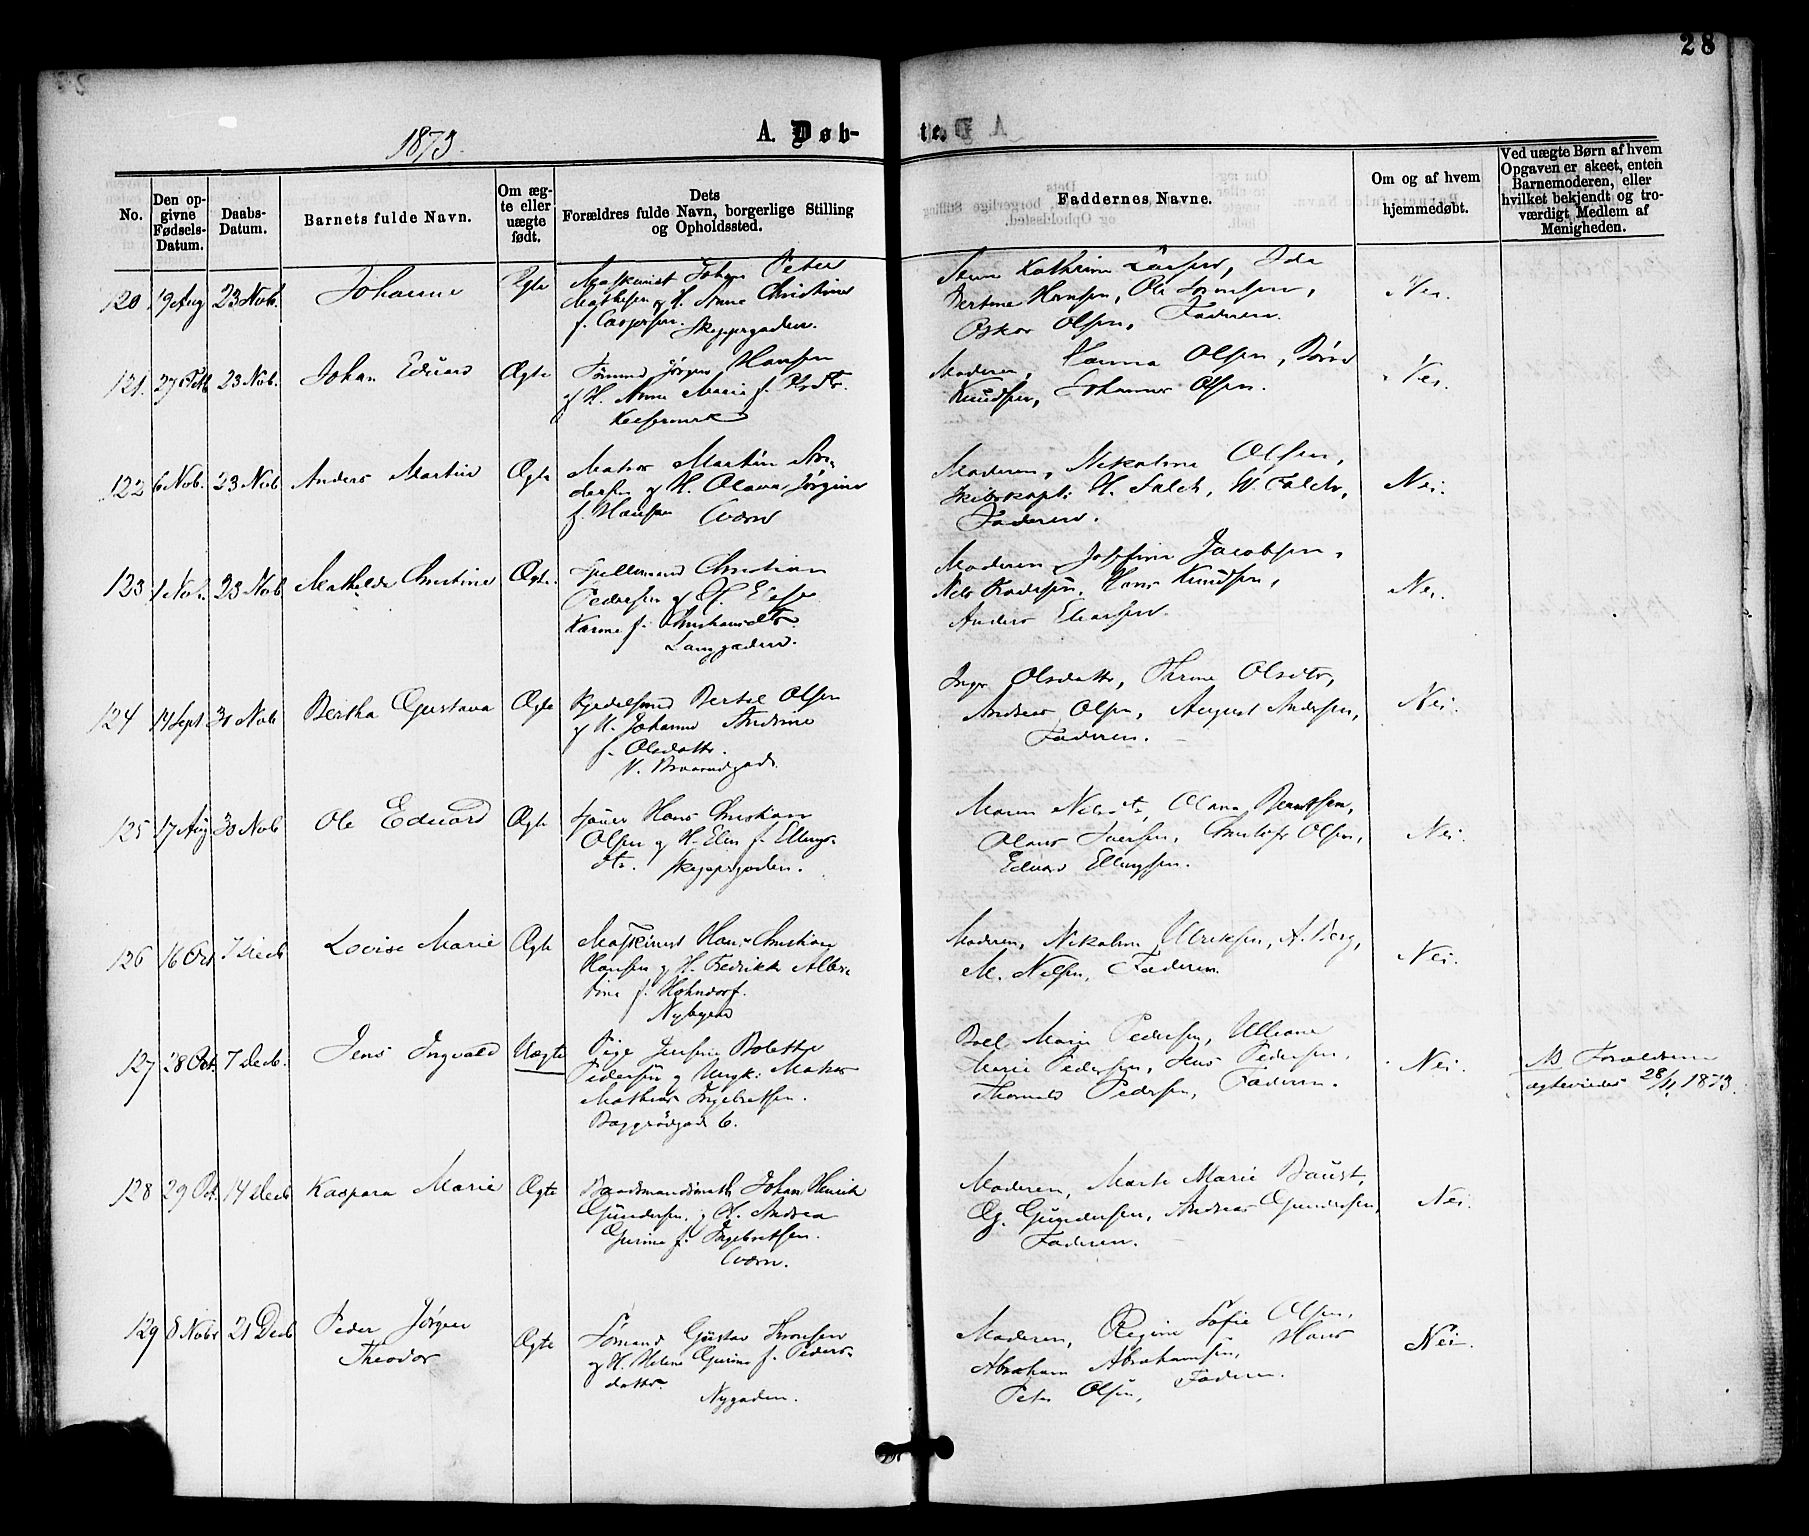 28
1873.
A. Døb-
te.
No.
Den op-
givne
Fødsels-
Datum.
Daabs-
Datum.
Barnets fulde Navn.
Om æg-
te eller
uægte
født.
Dets
Forældres fulde Navn, borgerlige Stilling
og Opholdssted.
Faddernes Navne.
Om og af hvem
hjemmedøbt.
Ved uægte Børn af hvem
Opgaven er skeet, enten
Barnemoderen, eller
hvilket bekjendt og tro-
værdigt Medlem af
Menigheden.
120 19 Aug 23 Nob. Johanne Ægte Maskinist Johan Peter
Mathesen og H. Anne Christine
f. Caspersen. Skeppergaden.
Kathrine Larsen, Ida
Hansen, Ole
Oskar Olsen, Faderen.
Nei.
121. 27 23 Nob. Johan Eduard Ægte Tømmd Jørgen Hansen
og H. Anne Marie f.
Moderen, Hanna Olsen,
Knudsen, Johannes Olsen.
Nei.
122 6 Nob. 23 Nob Anders Martin Ægte Matros Martin An-
dersen og H. Olava Jørgine
f. Hansen Cværn
Moderen, Nikoline Olsen,
Skibskapt: H. Falch, W. Falch,
Faderen.
Nei.
123 1 Nob. 23 Nob Mathilde Christine Ægte. Spillemand Christian
Pedersen og H. Else
Karine f. Christiansdtr.
Langgaden.
Moderen, Josefine Jacobsen,
Nils Hans Knudsen,
Anders Eliassen.
Nei.
124 14 Sept 30 Nob Bertha Gustava Ægte Kjedelsmd Bertel Olsen
og H. Johanne Andrine
f. Olsdattr.
N.
Inge Olsdattr, Olsdtr,
Andreas Olsen, August Andersen,
Faderen.
Nei.
125 17 Aug 30 Nob Ole Eduard Ægte Hans Christian
Olsen og H. Elen f. Ellings-
dtr. Skeppergaden.
Maren Nilsdtr, Olava Berntsen,
Olaus Iversen, Christofr Olsen,
Eduard Ellingsen.
Nei.
126 16 Oct 7 Decb Lovise Marie Ægte Maskinist Hans Christian
Hansen og H. Fredrikke Alber-
tine f. Hohndorf.
Nybyen
Moderen, Nikoline Ulriksen, A. Berg,
M. Nilsen, Faderen.
Nei.
127 28 Oct. 7 Decb. Jens Ingvald Uægte Pige Jensine Bolette
Pedersen og Ungk: Matros
Mathias Ingebretsen.
6.
Boel Marie Pedersen, Ulliane
Marie Pedersen, Jens Pedersen,
Thorvald Pedersen, Faderen.
Nei
NB Forældrene
ægteviedes 28/11 1873.
128 29 Oct. 14 Decb Kaspara Marie Ægte Baadsmandsmath Johan Henrik
Gundersen og H. Andrea
Gurine f. Ingebretsen.
Cværn.
Moderen, Marte Marie Baust,
G. Gundersen, Andreas Gundersen,
Faderen.
Nei.
129 8 Nobr 21 Decb Peder Jørgen
Theodor
Ægte Tømmd Gustav Thronsen
og H. Helene Gurine f. Peders-
dattr.
Nygaden.
Moderen, Regine Sofie Olsen,
Abraham Abrahamsen, Hans
Peter Olsen, Faderen.
Nei.